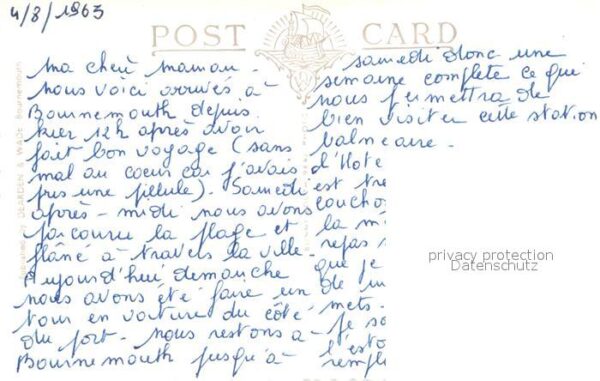 4/8/1963
POST CARD
Ma chère maman -
nous voici arrivés à
Bournemouth depuis
hier 12h après avoir
fait bon voyage (sans
mal au coeur car j'avais
pris une pillule). Samedi
après-midi nous avons
parcouru la plage et
flâné à travers la ville.
Aujourd'hui dimanche
nous avons été faire un
tour en voiture du côté
du port. nous restons à
Bournemouth jusqu'à
samedi donc une
semaine complète ce qui
nous permettra de
bien visiter cette station
balnéaire.
d'
est
couchos
la
repas
que je
de
mets.
je
l'
DEARDEN & WADE Bournemouth
privacy protection
Datenschutz